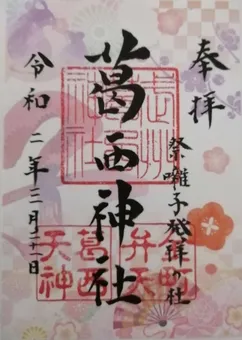 奉拝
祭囃子発祥の社
葛西神社
令和二年三月二十一日
葛西神社
金町弁天
葛西天神